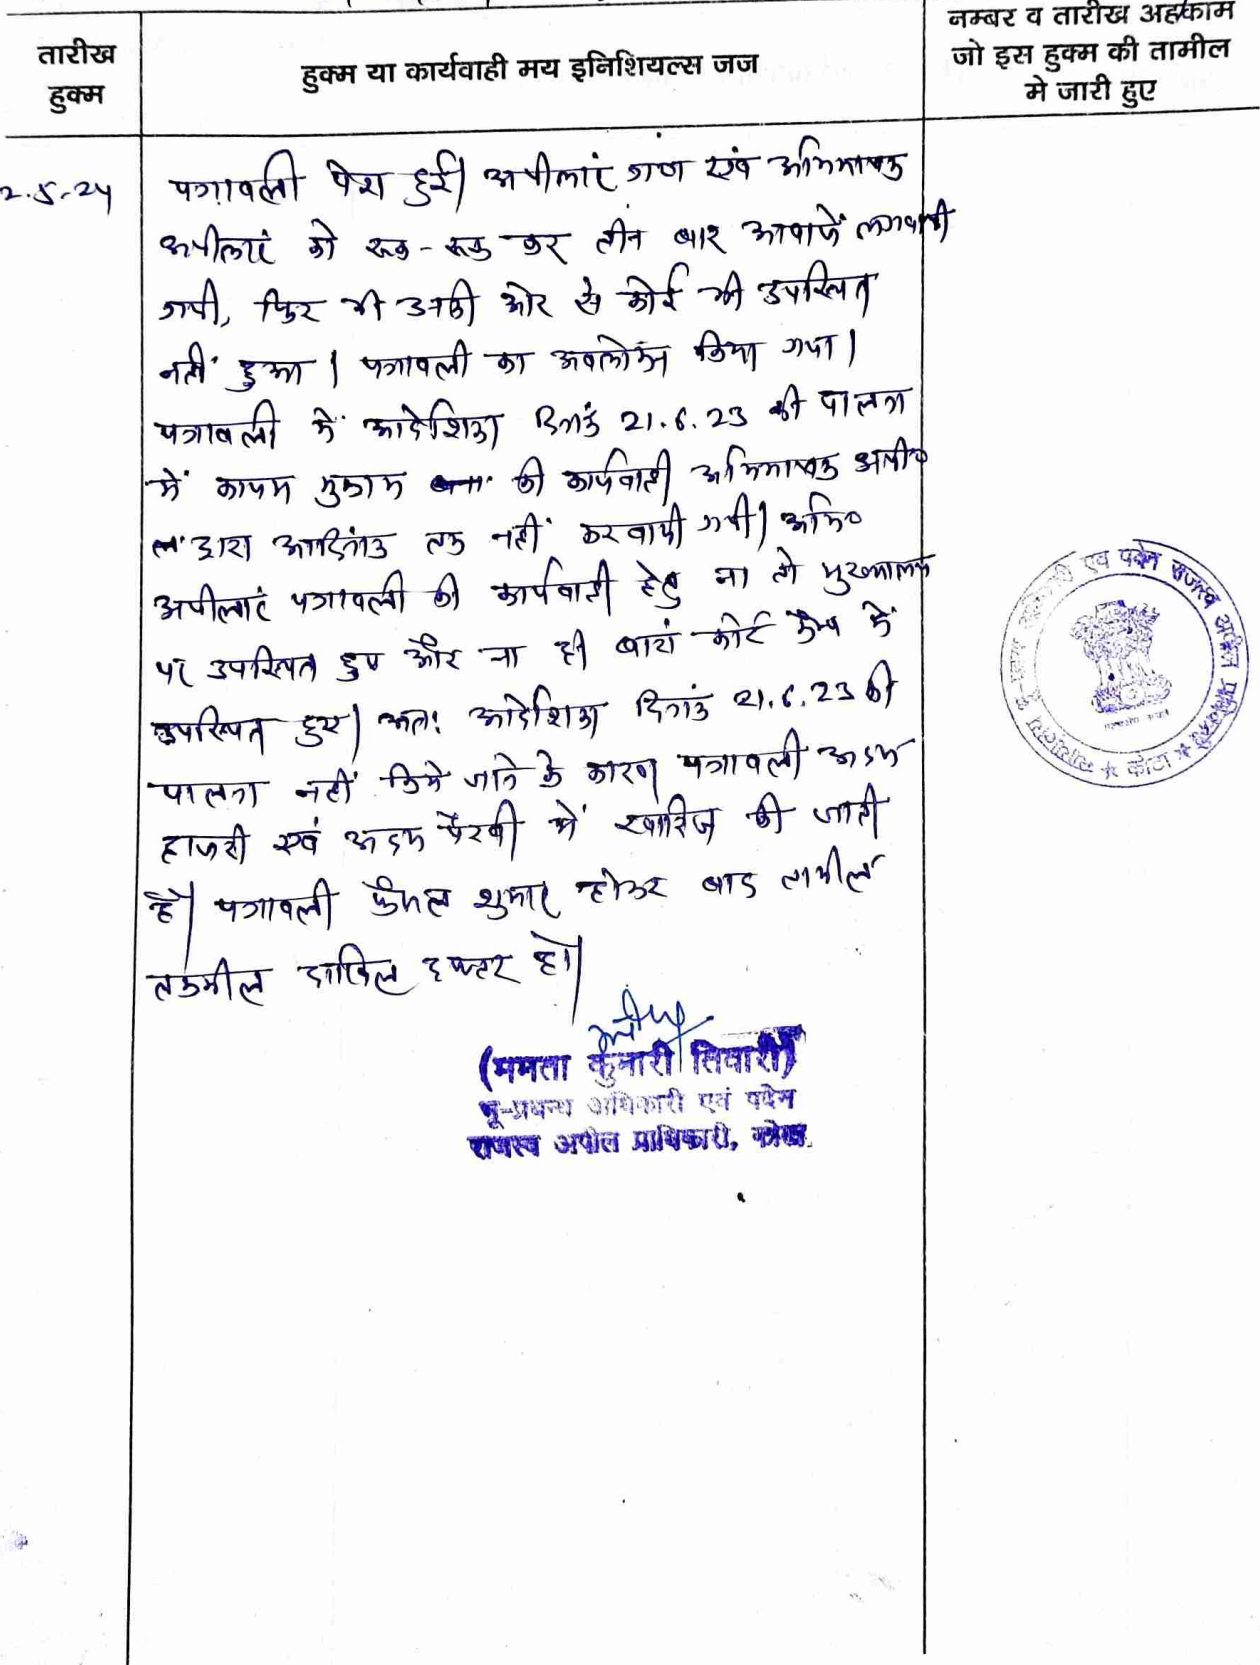 तारीख
हुक्म
हुक्म या कार्यवाही मय इनिशियल्स जज
नम्बर व तारीख अहकाम
जो इस हुक्म की तामील
मे जारी हुए
2.5.24
पत्रावली पेश हुई। अपीलांट गण एवं अभिभाषक
अपीलांट को रूक-रूक कर तीन बार आवाजें लगवायी
गयी, फिर भी उनकी ओर से कोई भी उपस्थित
नहीं हुआ। पत्रावली का अवलोकन किया गया।
पत्रावली में आदेशिका दिनांक 21.6.23 की पालना
में कायम मुकाम की कार्यवाही अभिभाषक अपी०
द्वारा आदिनांक तक नहीं करवायी गयी। अभि०
अपीलांट पत्रावली की कार्यवाही हेतु ना तो मुख्यालय
पर उपस्थित हुए और ना ही बारां कोर्ट कैम्प में
उपस्थित हुए। अतः आदेशिका दिनांक 21.6.23 की
पालना नहीं किये जाने के कारण पत्रावली अदम
हाजरी एवं अदम पैरवी में खारिज की जाती
है। पत्रावली फैसल शुमार होकर बाद तामील
तकमील दाखिल दफ्तर हो।
(ममता कुमारी तिवारी)
भू-प्रबन्ध अधिकारी एवं पदेन
राजस्व अपील प्राधिकारी, कोटा
एवं पदेन राजस्व अपील प्राधिकारी
★ कोटा ★